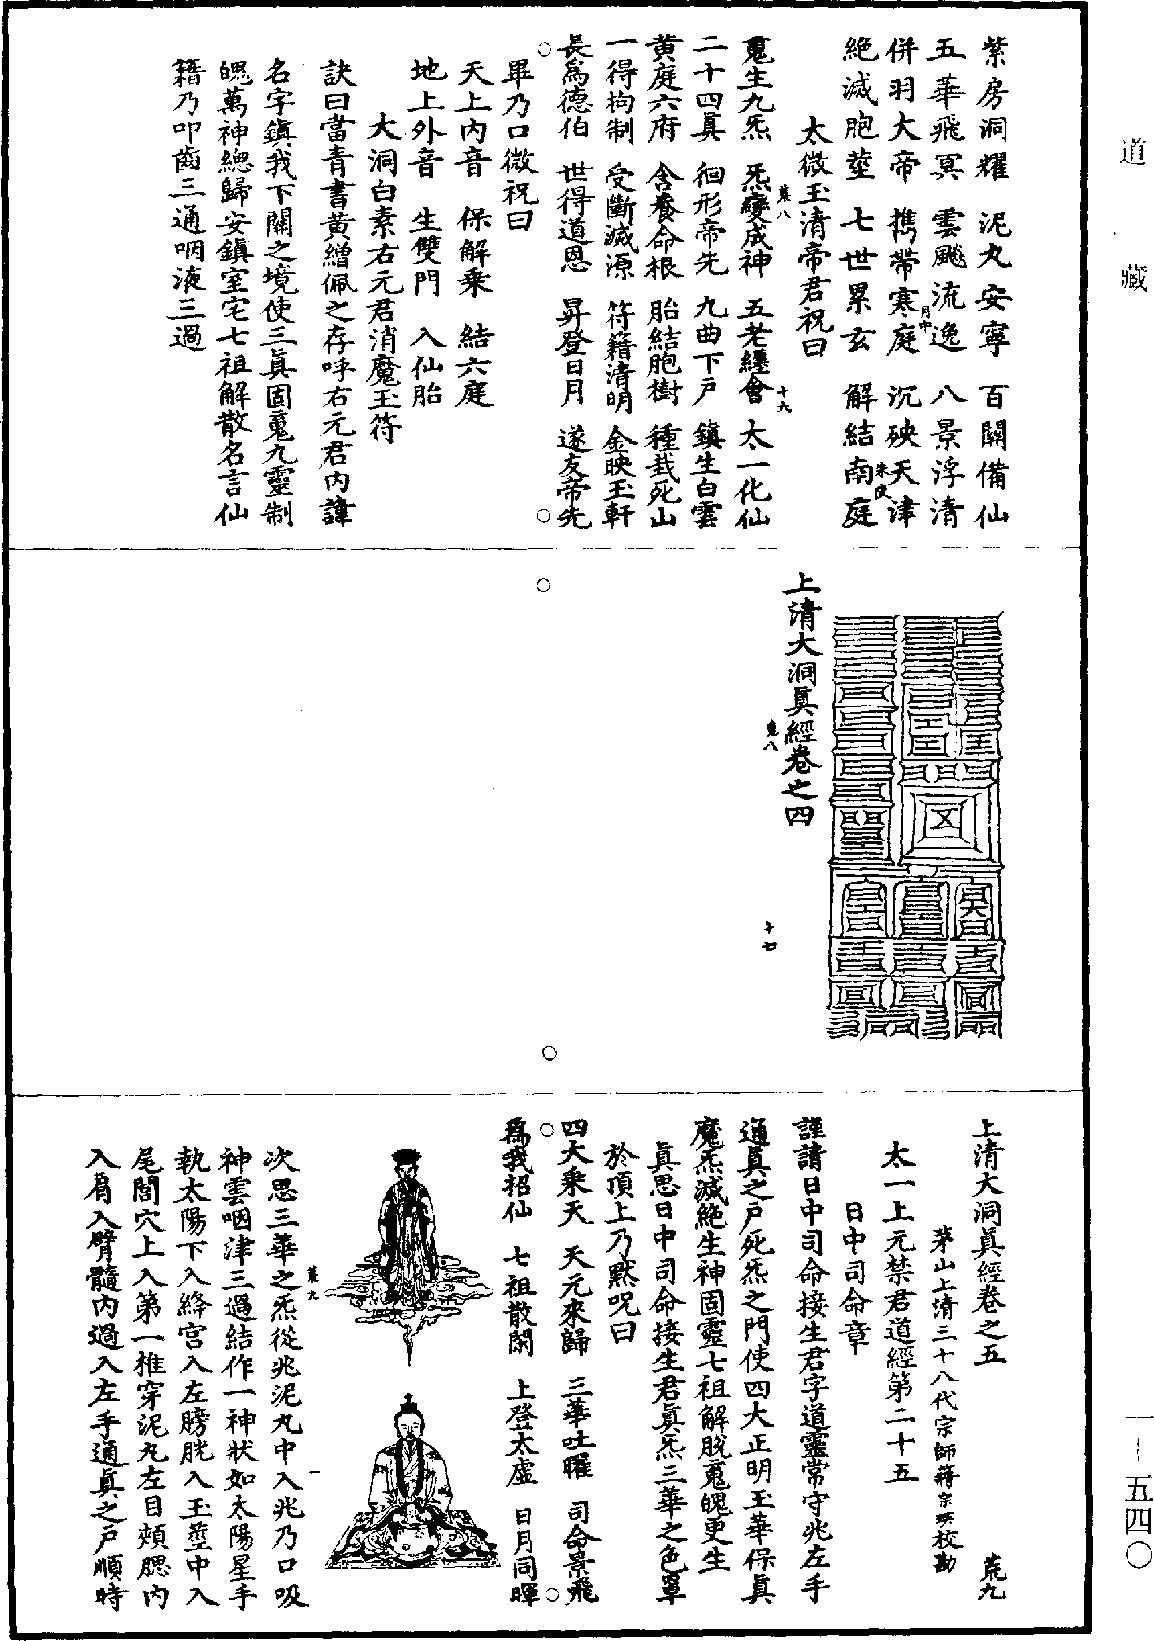 道藏
紫房洞耀　泥丸安寧　百關備仙
五華飛冥　雲飈流逸　八景浮清
併羽大帝　攜帶寒庭　月中　沉殃天津
絶滅胞莖　七世累玄　解結南庭　朱皮
太微玉清帝君祝曰
荒八
十六
䰟生九炁　炁變成神　五老纏會　太一化仙
二十四真　徊形帝先　九曲下戸　鎮生白雲
黄庭六府　含養命根　胎結胞樹　種栽死山
一得拘制　受斷滅源　符籍清明　金映玉軒
長爲德伯　世得道恩　昇登日月　遂友帝先
畢乃口微祝曰
天上内音　保解乘　結六庭
地上外音　生雙門　入仙胎
大洞白素右元君消魔玉符
訣曰當青書黄繒佩之存呼右元君内諱
名字鎮我下關之境使三真固䰟九靈制
魄萬神總歸安鎮室宅七祖解散名言仙
籍乃叩齒三通咽液三過
上清大洞真經卷之四
荒八
十七
上清大洞真經卷之五
荒九
茅山上清三十八代宗師蔣宗瑛校勘
太一上元禁君道經第二十五
日中司命章
謹請日中司命接生君字道靈常守兆左手
通真之戸死炁之門使四大正明玉華保真
魔炁滅絶生神固靈七祖解脱䰟魄更生
真思日中司命接生君真炁三華之色罩
於頂上乃黙呪曰
四大乘天　天元來歸　三華吐曜　司命景飛
爲我招仙　七祖散閞　上登太虚　日月同暉
荒九
一
次思三華之炁從兆泥丸中入兆乃口吸
神雲咽津三過結作一神狀如太陽星手
執太陽下入絳宫入左膀胱入玉莖中入
尾閭穴上入第一椎穿泥丸左目頰腮内
入肩入臂髓内過入左手通真之戸順時
一—五四〇